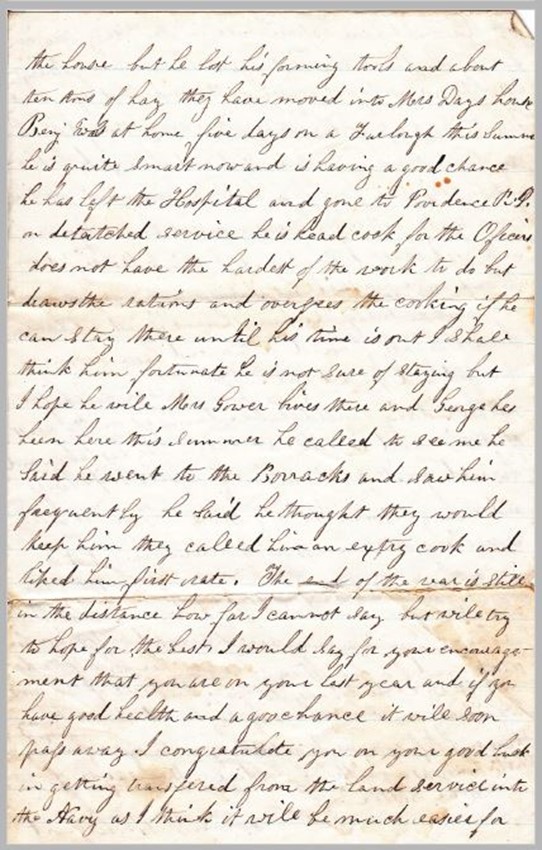 the house but he lost his farming tools and about
ten tons of hay they have moved into Mrs Days house
Benj was at home five days on a Furlough this Summe
he is quite Smart now and is having a good chance
he has left the Hospital and gone to Povidence R.I.
on detatched service he is head cook for the Officers
does not have the hardest of the work to do but
draws the rations and oversees the cooking if he
can stay there until his time is out I shall
think him fortunate he is not sure of staying but
I hope he will Mrs Gower lives there and George has
been here this summer he called to see me he
Said he went to the Borracks and saw him
frequently he said he thought they would
keep him they called him an cook and
liked him first rate. The end of the war is still
in the distance how far I cannot say but will try
to hope for the best. I would say for your encourage-
ment that you are on your last year and if yo
have good health and a goo chance it will soon
pass away I congratulate you on your good luck
in getting transfered from the land service into
the Navy as I think it will be much easier for